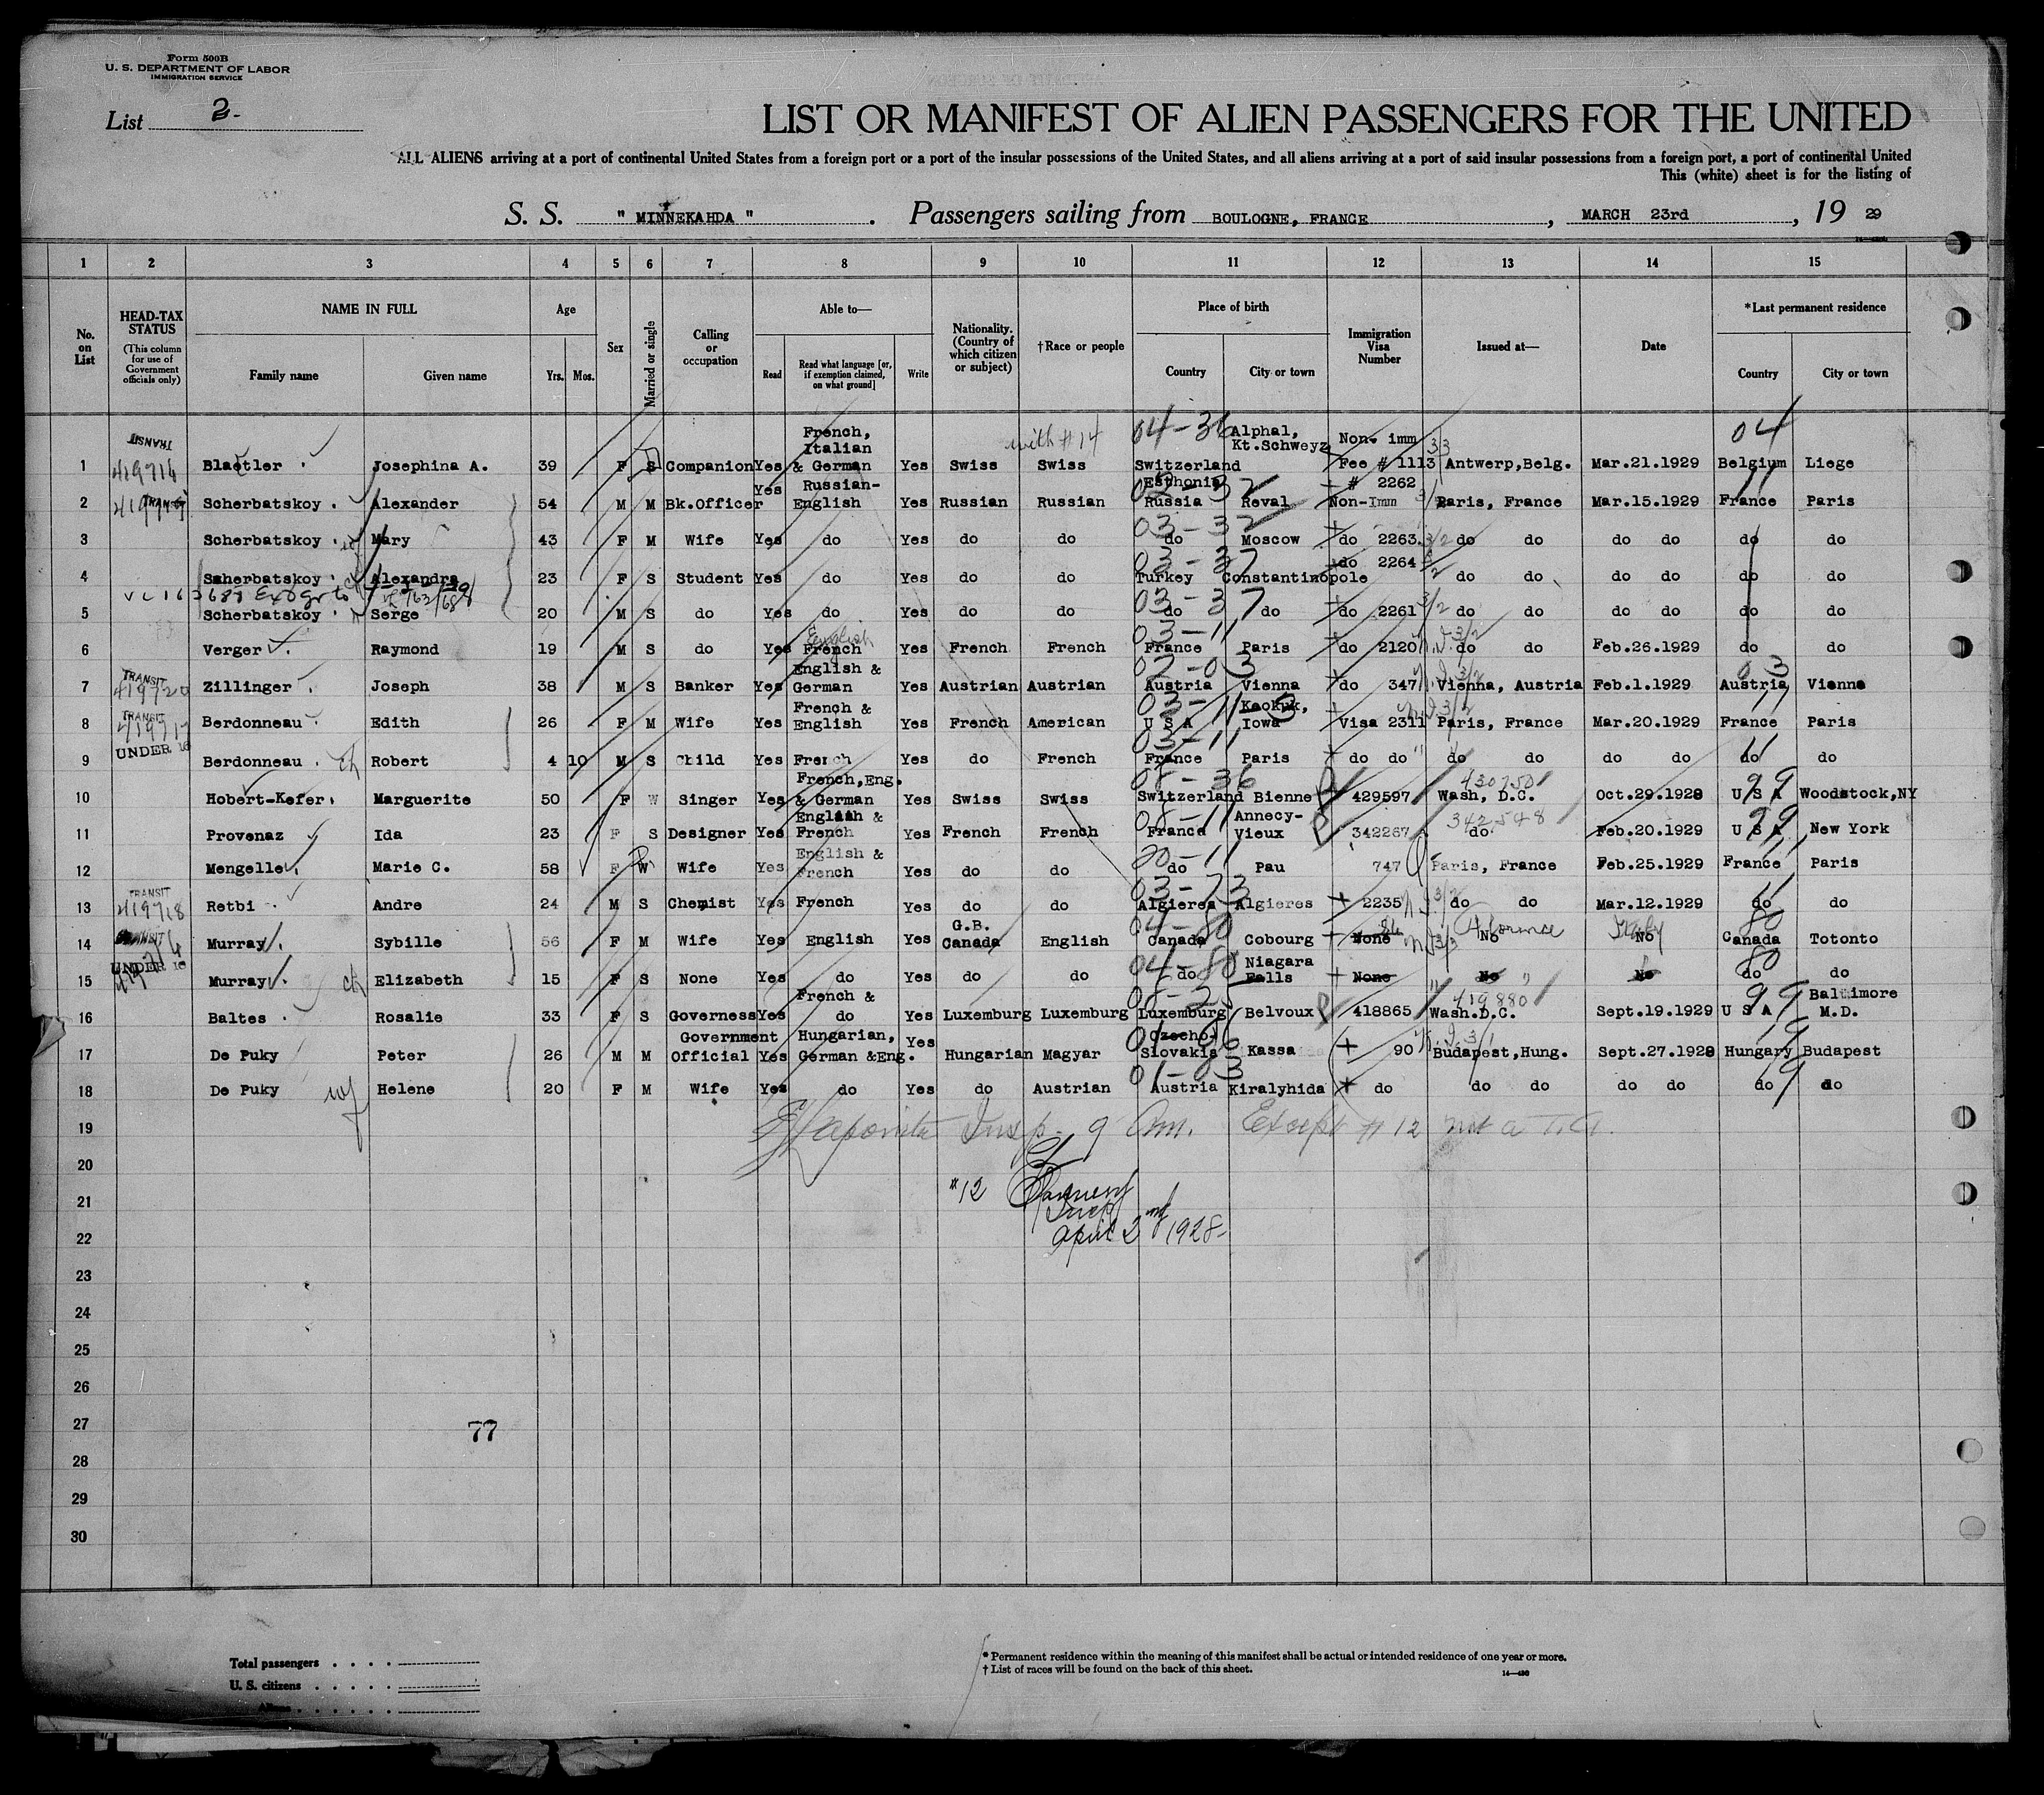 Form 500B
U. S. DEPARTMENT OF LABOR
IMMIGRATION SERVICE
List 2-
LIST OR MANIFEST OF ALIEN PASSENGERS FOR THE UNITED
ALL ALIENS arriving at a port of continental United States from a foreign port or a port of the insular possessions of the United States, and all aliens arriving at a port of said insular possessions from a foreign port, a port of continental United
This (white) sheet is for the listing of
S. S. " MINNEKAHDA " . Passengers sailing from BOULOGNE, FRANCE , MARCH 23rd , 19 29
1 2 3 4 5 6 7 8 9 10 11 12 13 14 15
No. on List
HEAD-TAX STATUS (This column for use of Government officials only)
NAME IN FULL Family name Given name
Age Yrs. Mos.
Sex
Married or single
Calling or occupation
Able to— Read Read what language [or, if exemption claimed, on what ground] Write
Nationality. (Country of which citizen or subject)
†Race or people
Place of birth Country City or town
Immigration Visa Number
Issued at—
Date
*Last permanent residence Country City or town
with #14 04-36 04
1 TRANSIT 419714 Blaetler Josephina A. 39 F S Companion Yes French, Italian & German Yes Swiss Swiss Switzerland Alphal, Kt.Schweyz Non-imm Fee # 1113 Antwerp,Belg. Mar.21.1929 Belgium Liege
2 TRANSIT Scherbatskoy Alexander 54 M M Bk.Officer Yes Russian-English Yes Russian Russian Esthonia Russia Reval # 2262 Non-Imm Paris, France Mar.15.1929 France Paris
03-32
3 Scherbatskoy wf Mary 43 F M Wife Yes do Yes do do do Moscow do 2263 do do do do do do
03-37
4 Scherbatskoy Alexandra 23 F S Student Yes do Yes do do Turkey Constantinopole do 2264 do do do do do do
03-37
5 Scherbatskoy Serge 20 M S do Yes do Yes do do do do do 2261 do do do do do do
03-11
6 Verger Raymond 19 M S do Yes English French Yes French French France Paris do 2120 do do Feb.26.1929 do do
02-03 03
7 TRANSIT 419720 Zillinger Joseph 38 M S Banker Yes English & German Yes Austrian Austrian Austria Vienna do 347 Vienna, Austria Feb.1.1929 Austria Vienna
03-11
8 TRANSIT 419717 Berdonneau Edith 26 F M Wife Yes French & English Yes French American U S A Keokuk, Iowa Visa 2311 Paris, France Mar.20.1929 France Paris
03-11
9 UNDER 16 Berdonneau ch Robert 4 10 M S Child Yes French Yes do French France Paris do do do do do do do do
08-36 430750 99
10 Hobert-Kefer Marguerite 50 F W Singer Yes French,Eng. & German Yes Swiss Swiss Switzerland Bienne 429597 Wash, D.C. Oct.29.1928 U S A Woodstock,NY
08-11 342548 99
11 Provenaz Ida 23 F S Designer Yes English & French Yes French French France Annecy-Vieux 342267 do Feb.20.1929 U S A New York
20-11
12 Mengelle Marie C. 58 F W Wife Yes English & French Yes do do do Pau 747 Paris, France Feb.25.1929 France Paris
03-73
13 TRANSIT 419718 Retbi Andre 24 M S Chemist Yes French Yes do do Algieres Algieres 2235 do do Mar.12.1929 do do
04-80 Florence Italy 80
14 TRANSIT Murray Sybille 56 F M Wife Yes English Yes G.B. Canada English Canada Cobourg None No No Canada Totonto
04-80 80
15 UNDER 16 Murray ch Elizabeth 15 F S None Yes do Yes do do do Niagara Falls None No No do do
419880 99
16 Baltes Rosalie 33 F S Governess Yes French & do Yes Luxemburg Luxemburg Luxemburg Belvoux 418865 Wash.D.C. Sept.19.1929 U S A Baltimore M.D.
17 De Puky Peter 26 M M Government Official Yes Hungarian, German &Eng. Yes Hungarian Magyar Czecho-Slovakia Kassa 90 Budapest,Hung. Sept.27.1928 Hungary Budapest
01-03
18 De Puky wf Helene 20 F M Wife Yes do Yes do Austrian Austria Kiralyhida do do do do do do do
19 Insp. 9 Am. Except #12 not a T.A.
20
21 #12
Insp
22 April 2nd 1928-
23
24
25
26
27 77
28
29
30
Total passengers
U. S. citizens
Aliens
* Permanent residence within the meaning of this manifest shall be actual or intended residence of one year or more.
† List of races will be found on the back of this sheet.